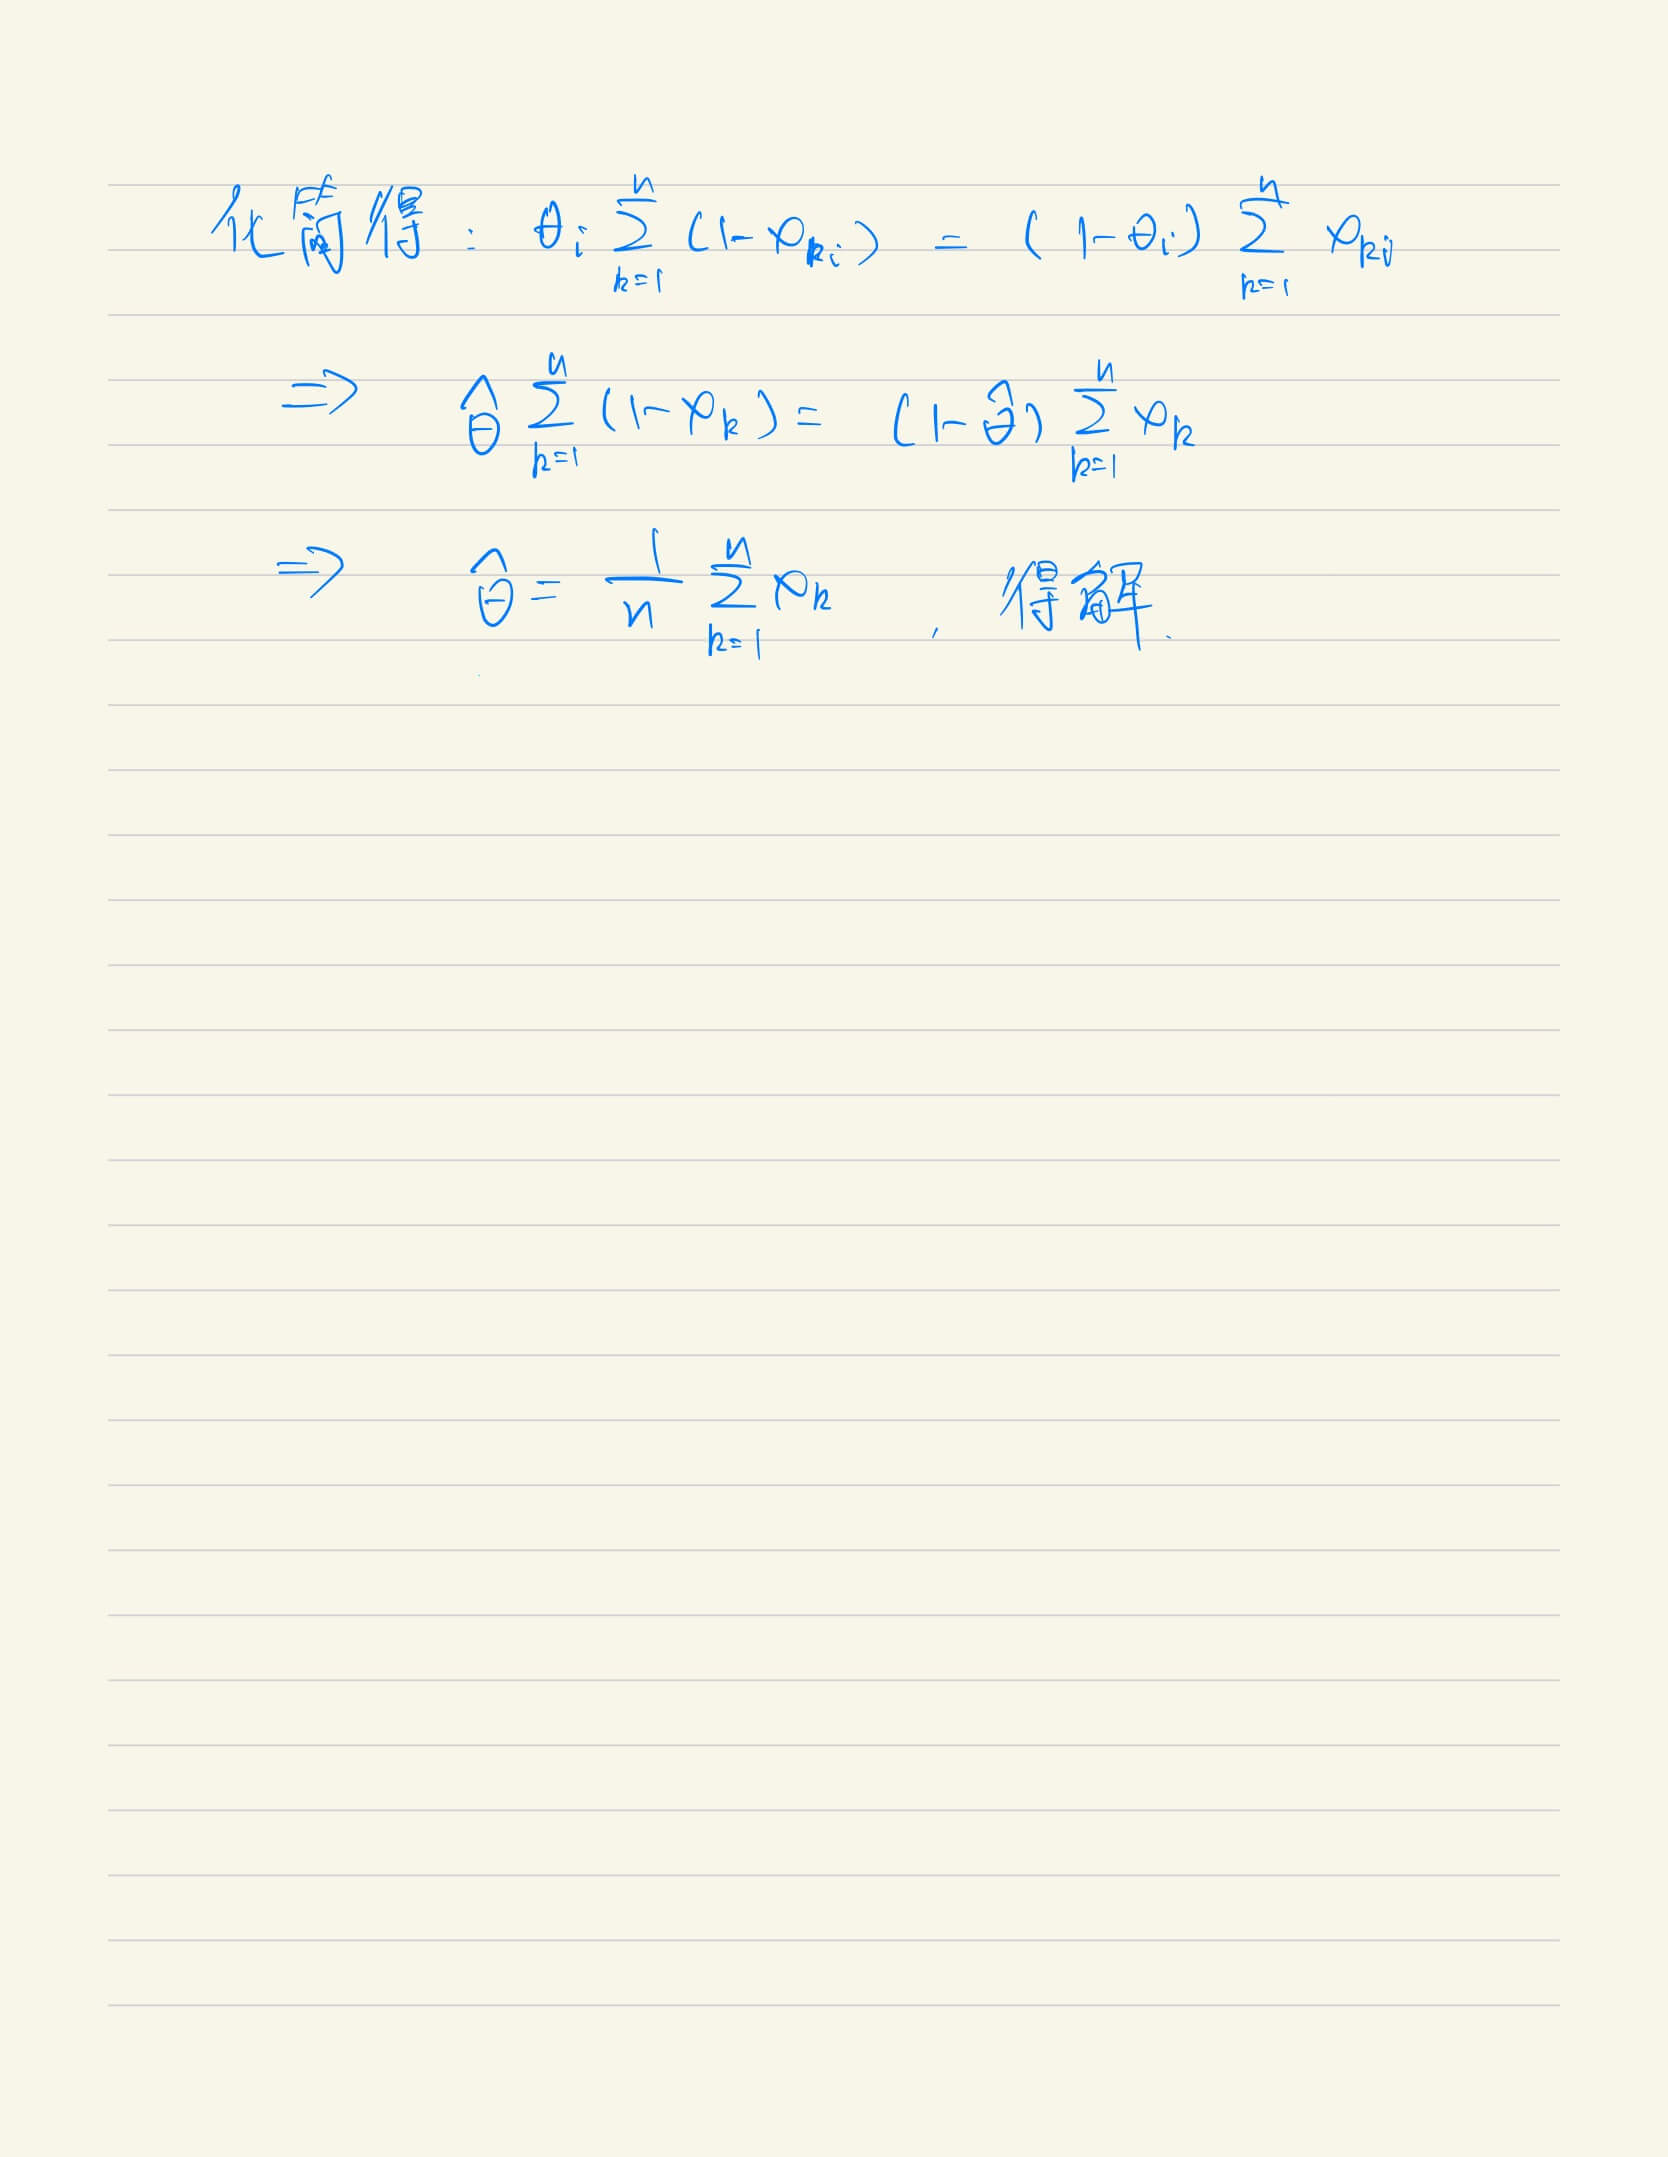 化简得: θᵢ ∑ₖ₌₁ⁿ (1-xₖᵢ) = (1-θᵢ) ∑ₖ₌₁ⁿ xₖᵢ
⇒ θ̂ ∑ₖ₌₁ⁿ (1-xₖ) = (1-θ̂) ∑ₖ₌₁ⁿ xₖ
⇒ θ̂ = 1/n ∑ₖ₌₁ⁿ xₖ , 得解.